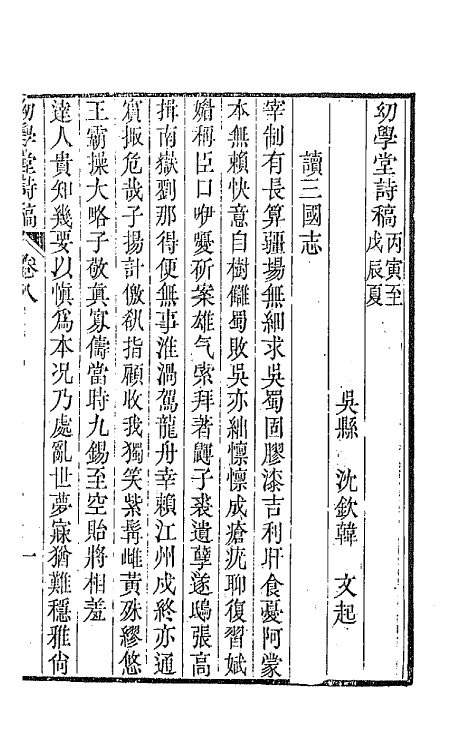 幼學堂詩稿丙寅至戊辰夏
吳縣 沈欽韓 文起
讀三國志
宰制有長算疆埸無細求吳蜀固膠漆吉利旰食憂阿蒙
本無賴快意自樹讎蜀敗吳亦絀懍懍成瘡疣聊復習嫵
媚稱臣口咿嚘斫案雄气索拜著鼲子裘遺孽遂鴟張高
揖南嶽劉那得便無事淮渦駕龍舟幸賴江州戍終亦通
賓掫危哉子揚計儌欲指顧收我獨笑紫髯雌黃殊繆悠
王霸操大略子敬真寡儔當時九錫至空貽將相羞
達人貴知幾要以慎為本况乃處亂世夢寐猶難穩雅尙
幼學堂詩稿 卷八 一